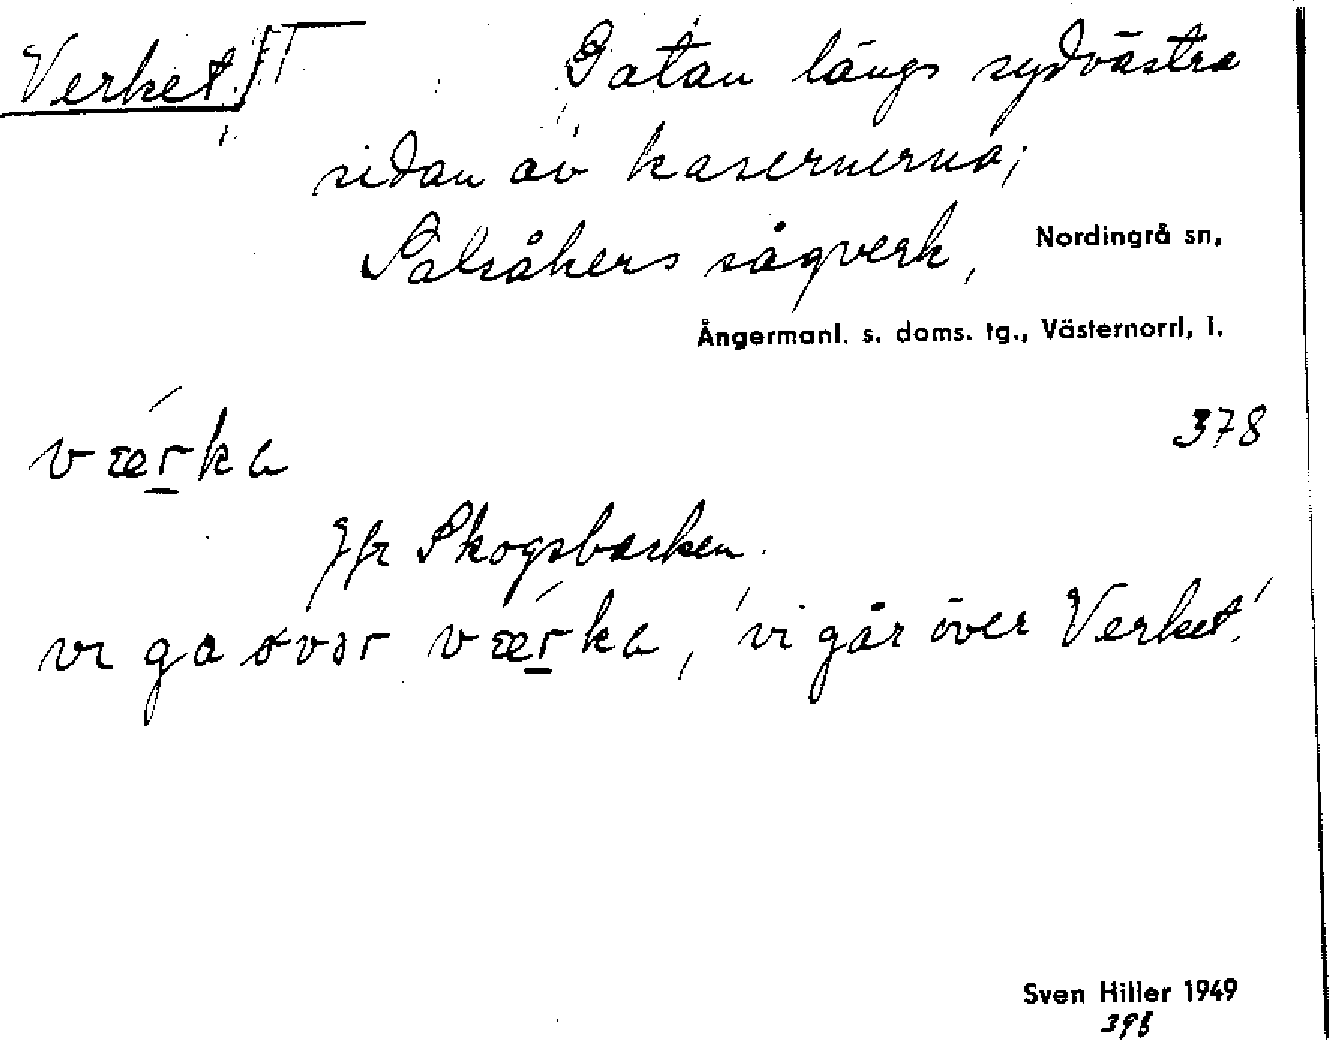 Verket Gatan längs sydvästra
sidan av kasernerna;
Salsåkers sågverk, Nordingrå sn,
Ångermanl. s. doms. tg., Västernorrl, l.
værka 378
Jfr Skogsbacken.
vi ga övər værka, 'vi går över Verket.'
Sven Hiller 1949